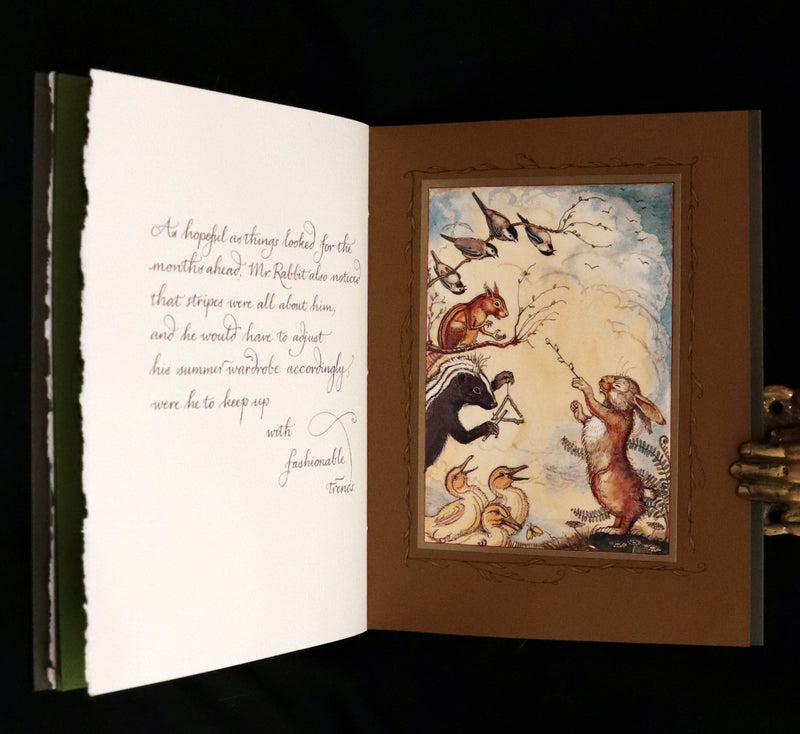 As hopeful as things looked for the
months ahead, Mr. Rabbit also noticed
that stripes were all about him,
and he would have to adjust
his summer wardrobe accordingly,
were he to keep up
with
fashionable
trends.